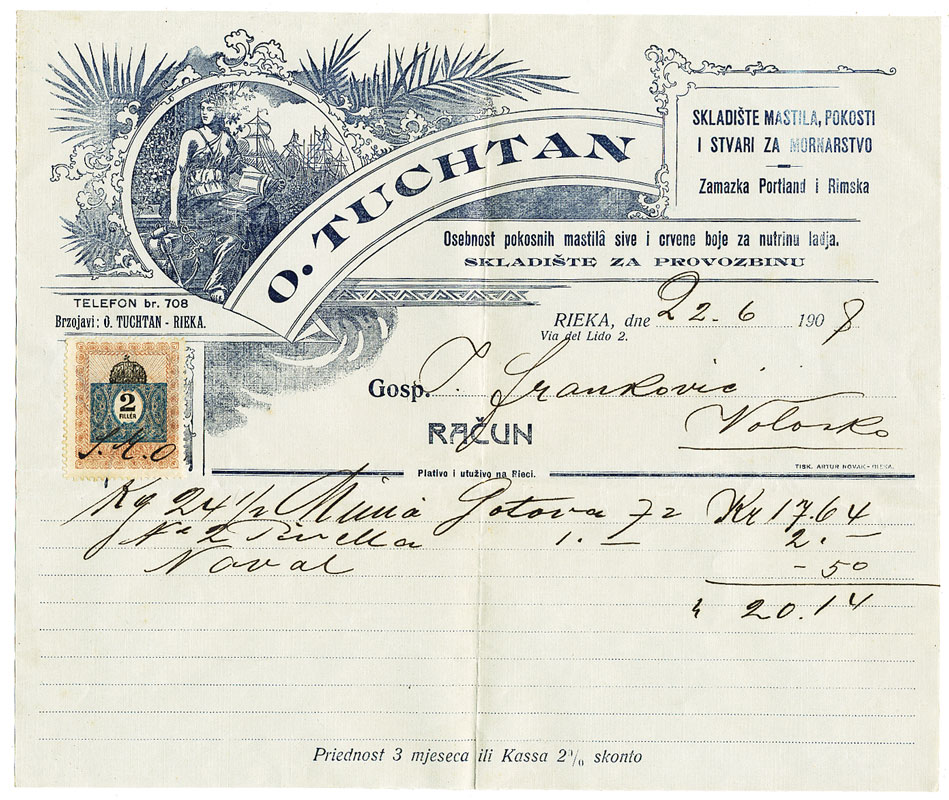 O. TUCHTAN
SKLADIŠTE MASTILA, POKOSTI
I STVARI ZA MORNARSTVO
Zamazka Portland i Rimska
Osebnost pokosnih mastilâ sive i crvene boje za nutrinu ladja.
SKLADIŠTE ZA PROVOZBINU
TELEFON br. 708
Brzojavi: O. TUCHTAN - RIEKA.
RIEKA, dne 22. 6 1908
Via del Lido 2.
2
FILLÉR
Gosp. J. Franković
Volosko
RAČUN
Plativo i utuživo na Rieci.
TISK. ARTUR NOVAK - RIEKA.
Kg 24 1/2 Gotova 72 Kr 17.64
No 2 1. — 2. —
Noval - 50
20.14
Priednost 3 mjeseca ili Kassa 2% skonto